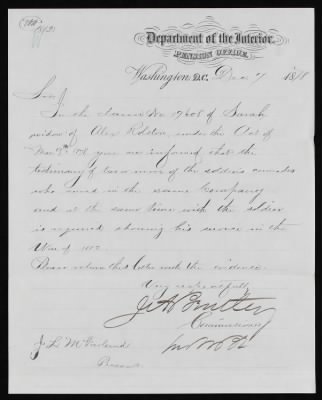 Department of the Interior,
PENSION OFFICE,
Washington D.C. Dec 7 187
Sir
In the claim No 17608 of Sarah
widow of Alex , under the Act of
Mar 9th 78 you are informed that the
testimony of two more of the soldiers comrades
who served in the same Company
and at the same time with the soldier
is required showing his service in the
War of 1812
Please return this letter with the evidence.
Very respectfully
Commissioner
J L
Present